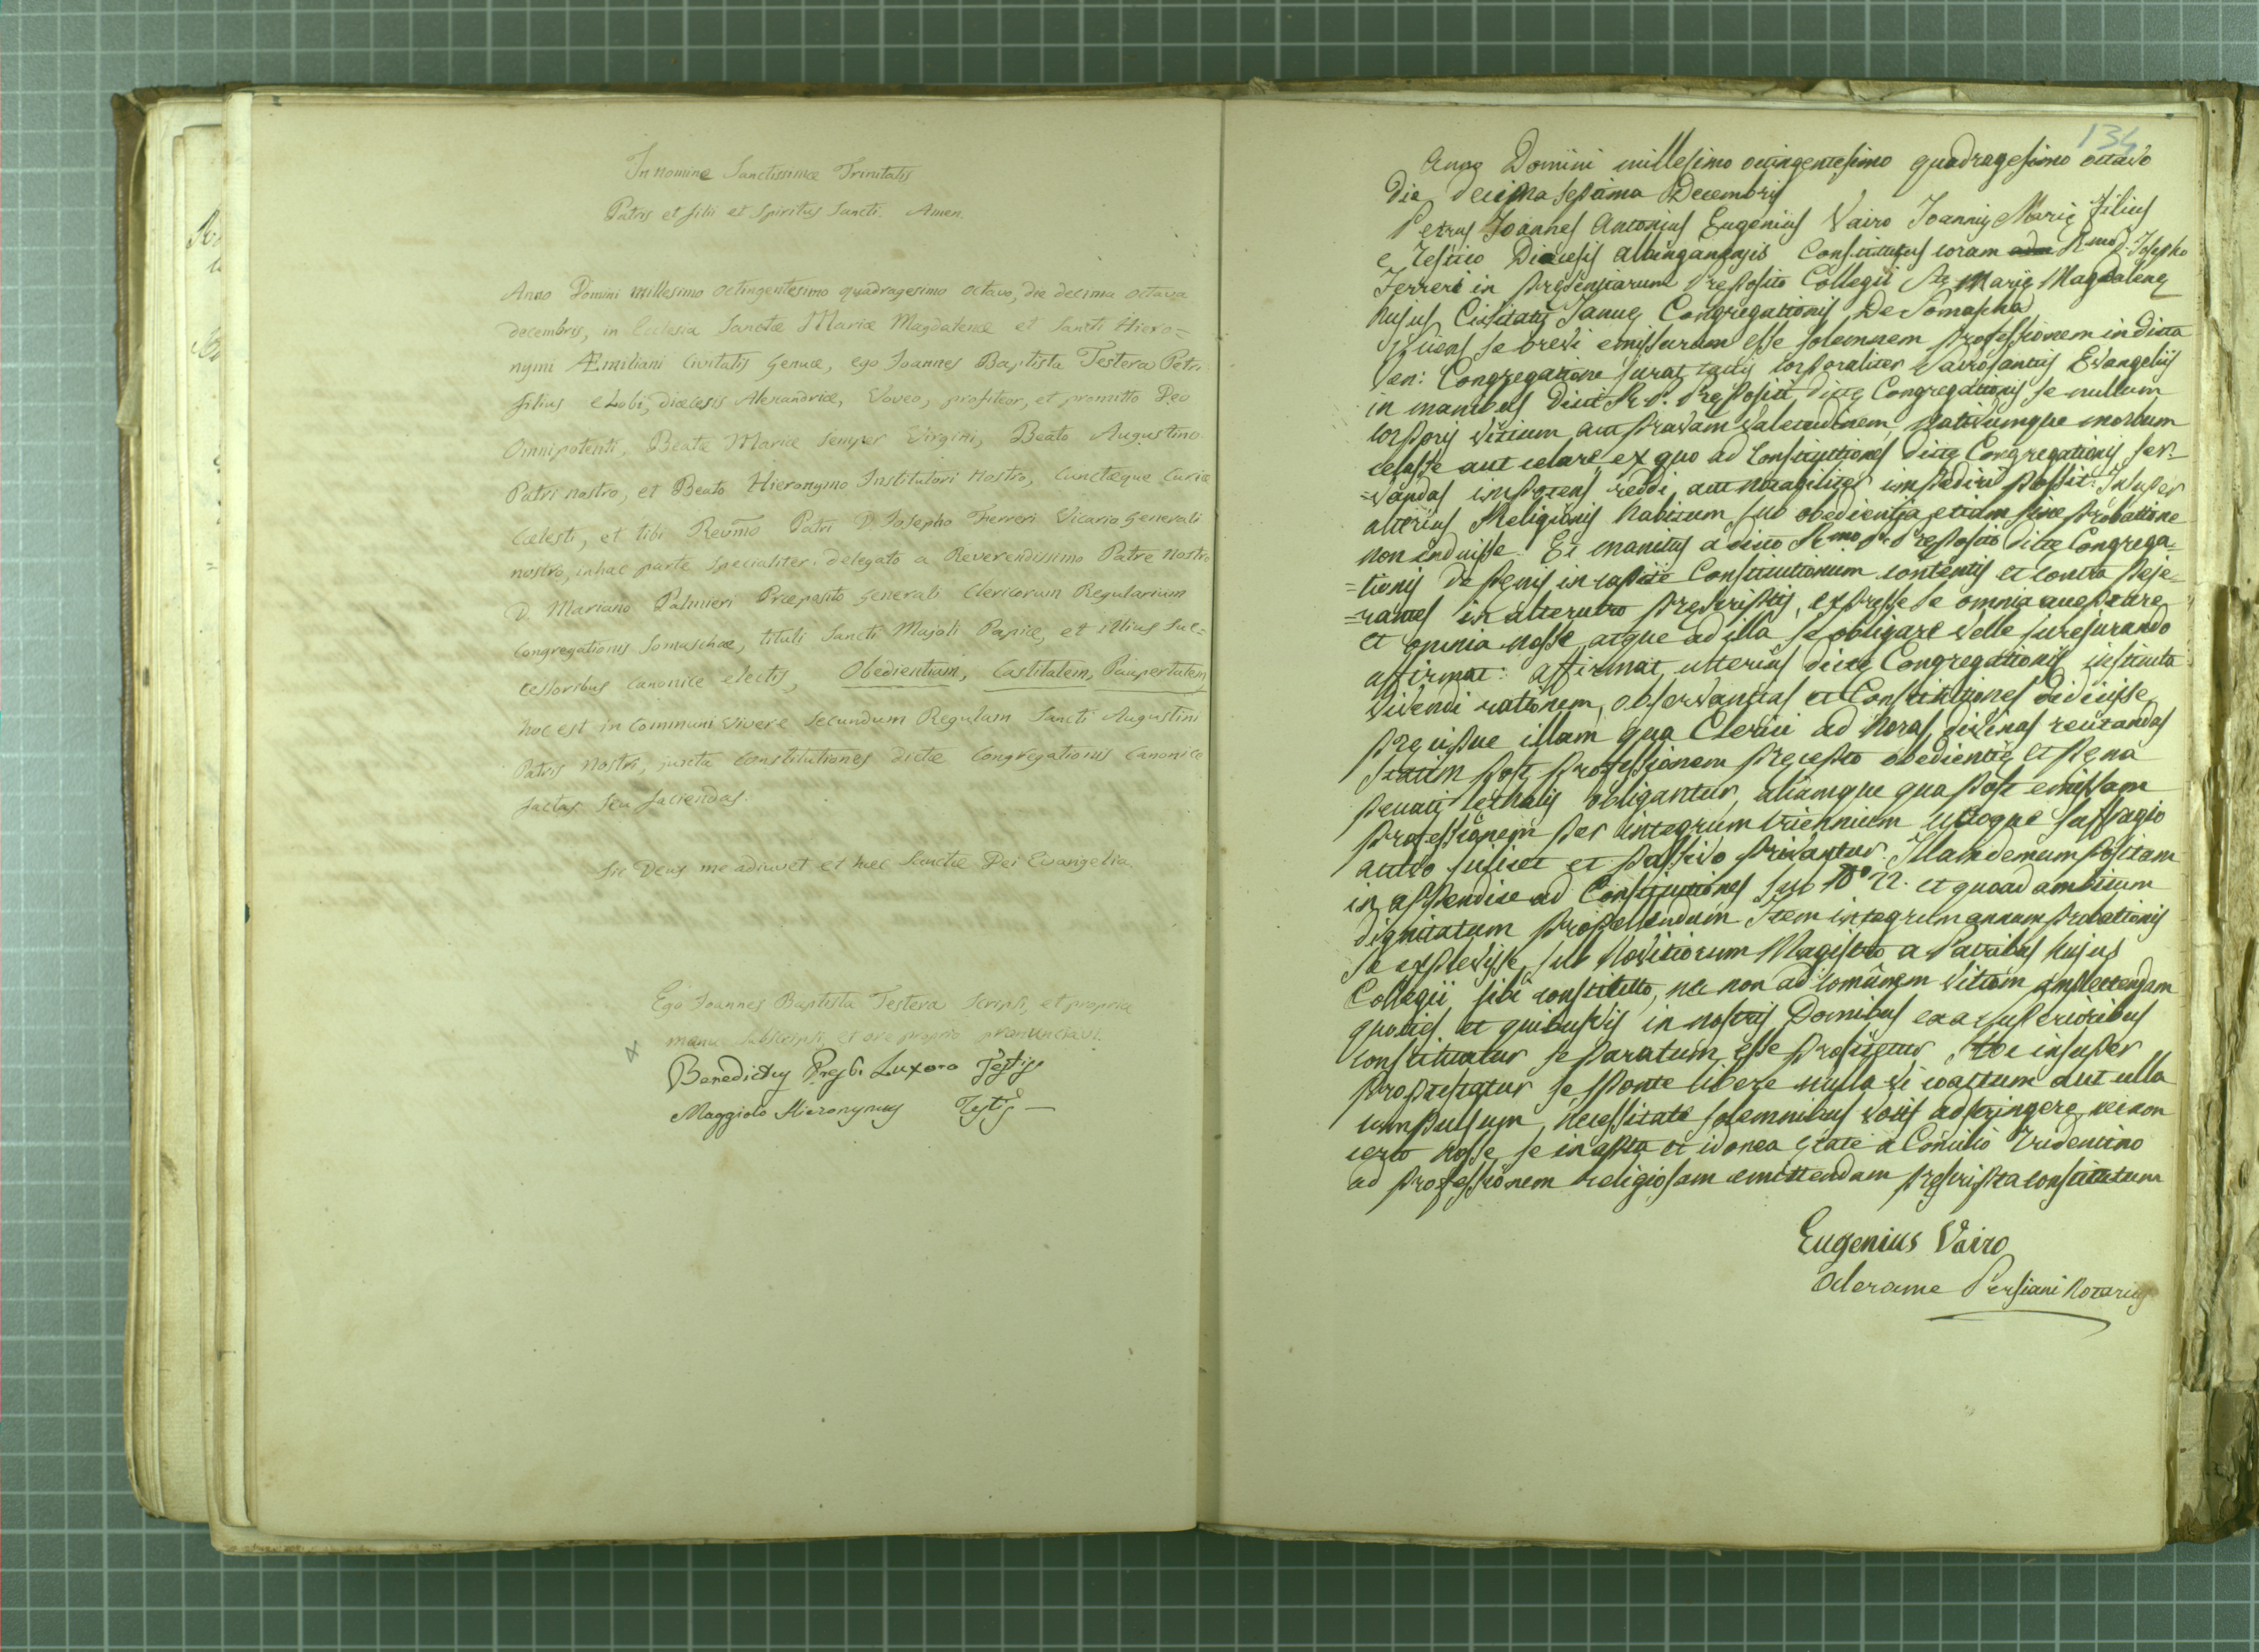 In nomine Sanctissimæ Trinitatis
Patris et filii et Spiritus Sancti. Amen.
Anno Domini millesimo octingentesimo quadragesimo octavo, die decima octava
decembris, in Ecclesia Sanctæ Mariæ Magdalenæ et Sancti Hiero=
nymi Æmiliani Civitatis Genuæ, ego Joannes Baptista Testera Petri
filius e Lobi, diœcesis Alexandriæ, Voveo, profiteor, et promitto Deo
Omnipotenti, Beatæ Mariæ semper Virgini, Beato Augustino
Patri nostro, et Beato Hieronymo Institutori nostro, cunctæque Curiæ
Cælesti, et tibi Revmo Patri D. Josepho Ferreri Vicario Generali
nostro, in hac parte specialiter delegato a Reverendissimo Patre nostro
D. Mariano Palmieri Præposito Generali Clericorum Regularium
Congregationis Somaschæ, tituli Sancti Majoli Papiæ, et illius Suc=
cessoribus canonice electis, Obedientiam, Castitatem, Paupertatem,
hoc est in communi vivere secundum Regulam Sancti Augustini
Patris Nostri, juxta Constitutiones dictæ Congregationis Canonice
factas, seu faciendas.
Sic Deus me adiuvet et hæc Sanctæ Dei Evangelia.
Ego Joannes Baptista Testera scripsi, et propria
manu subscripsi, et ore proprio pronunciavi.
Benedictus Presb. Luxoro Testis
Maggiolo Hieronymus Testis
134
Anno Domini millesimo octingentesimo quadragesimo octavo
Die decima septima Decembris
Petrus Joannes Antonius Eugenius Vairo Joannis Marię filius
e Testico Diocesis Albinganensis Constitutus coram R.mo D. Josepho
Ferreri in presentiarum Preposito Collegii Stę Marię Magdalenę
hujus Civitatis Januę Congregationis De Somascha
se brevi emissurum esse solemnem professionem in dicta
Ven: Congregatione jurat tactis corporaliter sacrosanctis Evangeliis
in manibus Dicti R. P. Prepositi dictę Congregationis se nullum
corporis vitium, aut pravam valetudinem, morbum
celasse aut celare, ex quo ad Constitutiones dictę Congregationis ser=
=vandas impotens reddi, aut notabiliter impediri possit. Insuper
alterius Religionis habitum sub obedientia etiam sine probatione
non induisse. Et monitus a dicto R.mo P. Preposito dictę Congrega=
=tionis de penis in capite Constitutionum contentis et contra peje=
=rantes in alterutro prescriptis, expresse se omnia
et omnia nosse, atque ad illa se obligare velle jurejurando
affirmat: affirmat ulterius dictę Congregationis instituta
vivendi rationem, observantias et Constitutiones didicisse
pręcipue illam qua Clerici ad horas divinas recitandas
statim post professionem pręcepto obedientię et pęna
peccati lethalis obligantur, aliamque qua post emissam
professionem per integrum triennium utroque suffragio
activo scilicet et passivo privantur. Illam demum positam
in appendice ad Constitutiones sub et quoad ambitum
dignitatum propellendum. Item integrum annum probationis
se explevisse, sub Novitiorum Magistro a Patribus hujus
Collegii sibi constituto, nec non ad comunem vitam amplectendam
quoties et quibusvis in nostris Domibus ea a superioribus
constituatur se paratum esse profitetur. Hoc insuper
protestatur se sponte libere nulla vi coactum aut ulla
impulsum necessitate solemnibus votis adstringere, nec non
certo nosse se in apta et idonea ętate a Concilio Tridentino
ad professionem religiosam emittendam pręscripta constitutum
Eugenius Vairo
Alerame Persiani Notarius